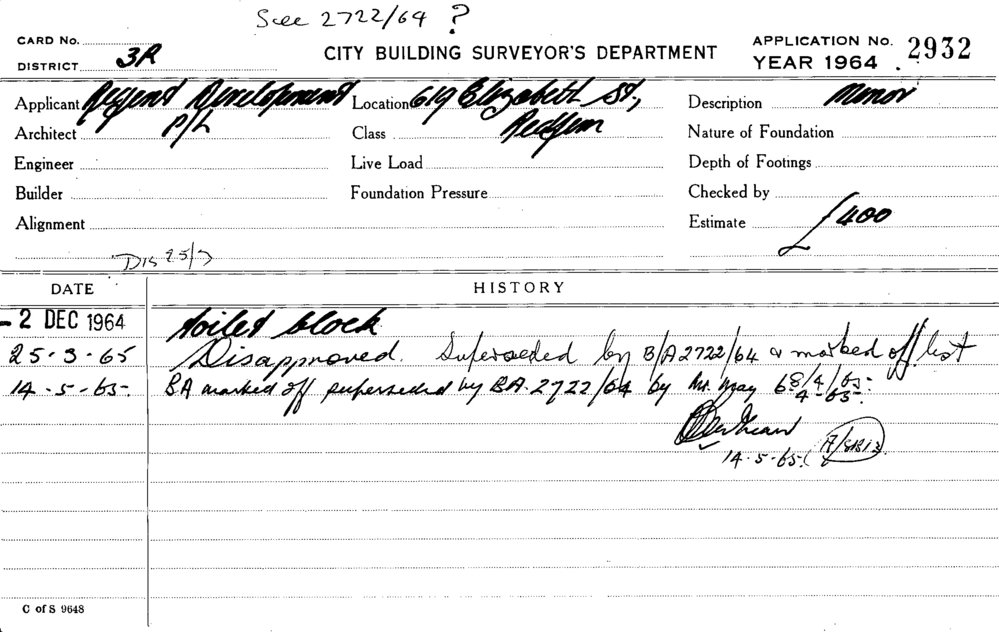 See 2722/64 ?
CARD No.
DISTRICT 3R
CITY BUILDING SURVEYOR'S DEPARTMENT
APPLICATION No. 2932
YEAR 1964
Applicant Regent Development Location 619 Elizabeth St, Description Minor
Architect P/L Class Redfern Nature of Foundation
Engineer Live Load Depth of Footings
Builder Foundation Pressure Checked by
Alignment Estimate £400
Dis 25/3
DATE HISTORY
- 2 DEC 1964 toilet block
25-3-65 Disapproved. Superseded by B/A 2722/64 & marked off list
14-5-65. BA marked off superseded by BA. 2722/64 by Mr. May
14-5-65.
C of S 9648